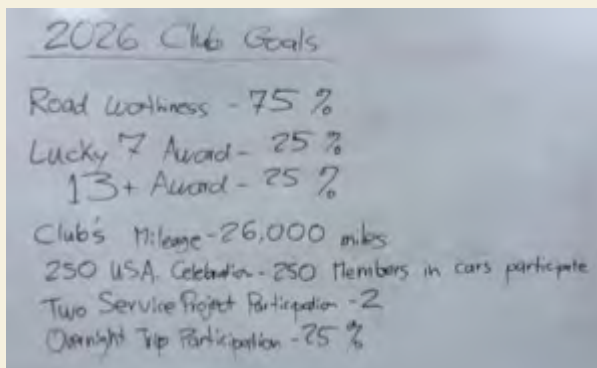 2026 Club Goals
Road Worthiness - 75 %
Lucky 7 Award - 25 %
13+ Award - 25 %
Club's Mileage - 26,000 miles
250 USA Celebration - 250 Members in cars participate
Two Service Project Participation - 2
Overnight Trip Participation - 25 %